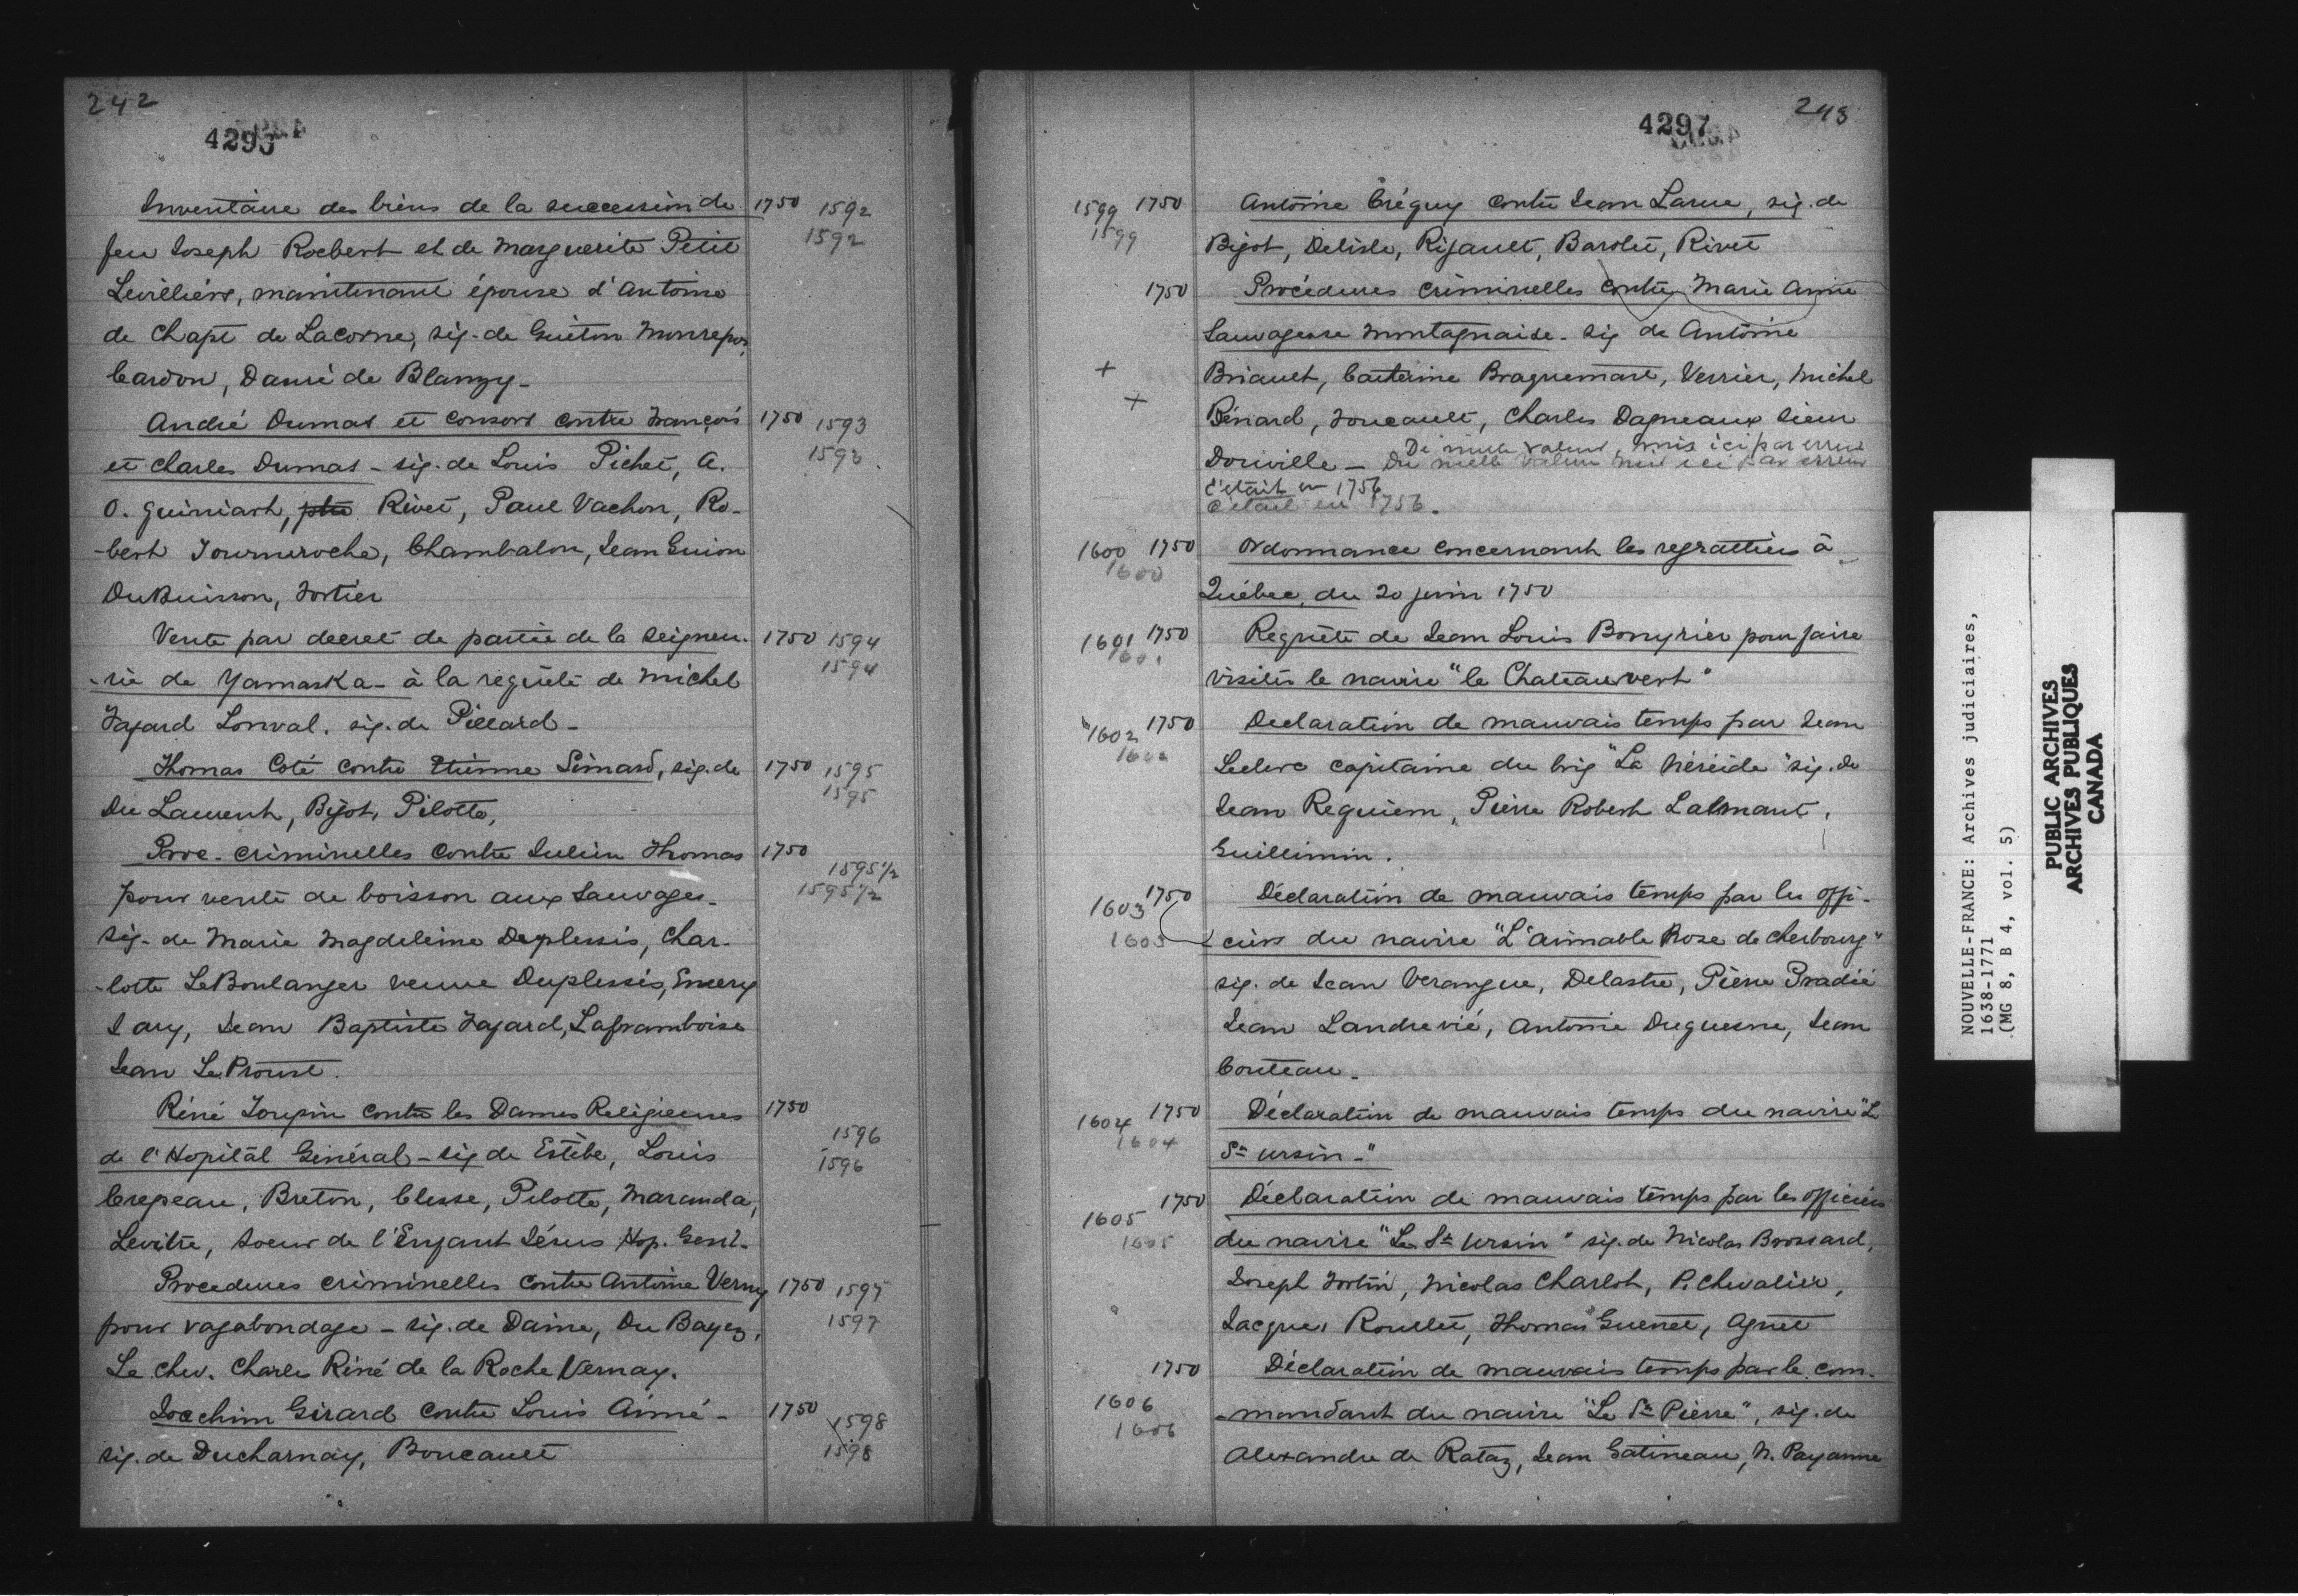 242
4295
Inventaire des biens de la succession de 1750 1592
1592
feu Joseph Rocbert et de Marguerite Petit
Levilliérs, maintenant épouse d'Antoine
de Chapt de Lacorne, sig. de Guiton Monrepos,
Cardon, Dauré de Blanzy -
André Dumas et consors contre François 1750 1593
et Charles Dumas - sig. de Louis Pichet, A. 1593
O. Guiniart, Rivet, Paul Vachon, Ro-
-bert Tourneroche, Chambalon, Jean Guion
DuBuisson, Fortier
Vente par decret de partie de la Seigneu- 1750 1594
-rie de Yamaska - à la requête de Michel 1594
Fafard Lonval. sig. de Pillard -
Thomas Coté contre Etienne Simard, sig. de 1750 1595
Du Laurent, Bigot, Pilotte, 1595
Proc. criminelles contre Julien Thomas 1750 1595 1/2
pour vente de boisson aux Sauvages - 1595 1/2
sig. de Marie Magdeleine Duplessis, Char-
-lotte LeBoulanger veuve Duplessis, Emery
Jary, Jean Baptiste Fafard, Laframboise
Jean Le Proust.
Réné Toupin contre les Dames Religieuses 1750
1596
de l'Hopitâl Général - sig de Estèbe, Louis 1596
Crepeau, Breton, Clesse, Pilotte, Maranda,
Levitre, Soeur de l'Enfant Jésus Hop. Genl.
Procedures criminelles contre Antoine Verny 1750 1597
pour vagabondage - sig. de Daine, Du Bayez, 1597
Le chev. Charles Réné de la Roche Vernay.
Joachim Girard contre Louis Aimé - 1750 1598
sig. de Ducharnay, Boucault 1598
243
4297
1599 1750 Antoine Créquy contre Jean Larue, sig. de
1599 Bigot, Delisle, Rigault, Barolet, Rivet
1750 Procédures criminelles contre Marie Anne
Sauvagesse Montagnaise - sig de Antoine
+ Briault, Catherine Braquemart, Verrier, Michel
+ Bénard, Foucault, Charles Dagneaux Sieur
De nulle valeur, mis ici par erreur
Douville - De nulle valeur mis ici par erreur
c'était en 1756
c'était en 1756.
1600 1750 Ordonnance concernant les regrattiers à
1600
Québec, du 20 juin 1750
1601 1750 Requête de Jean Louis Bonyrier pour faire
1601
visiter le navire "le Chateauvert"
1602 1750 Declaration de mauvais temps par Jean
1602
Leclerc capitaine du brig "La Néréide" sig. de
Jean Requiem, Pierre Robert Lalmant,
Guillimin.
1603 1750 Déclaration de mauvais temps par les offi-
1603 ciers du navire "L'aimable Rose de Cherbourg"
sig. de Jean Verangue, Delastre, Pierre Pradié
Jean Landrevié, Antoine Duquesne, Jean
Couteau -
1604 1750 Déclaration de mauvais temps du navire "Le
1604 St Ursin -"
1605 1750 Déclaration de mauvais temps par les officiers
1605 du navire "Le St Ursin" sig. de Nicolas Brossard,
Joseph Fortin, Nicolas Charlot, P. Chevalier,
Jacques Roullet, Thomas Guenet, Agnet
1750 Déclaration de mauvais temps par le com-
1606 -mandant du navire "Le St Pierre", sig. de
1606
Alexandre de Rataz, Jean Gatineau, N. Payanne
NOUVELLE-FRANCE: Archives judiciaires,
1638-1771
(MG 8, B 4, vol. 5)
PUBLIC ARCHIVES
ARCHIVES PUBLIQUES
CANADA